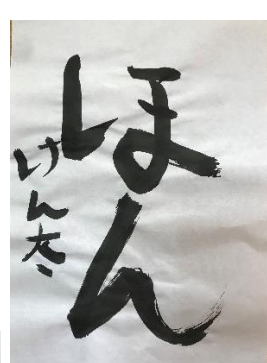 ほん
けん太